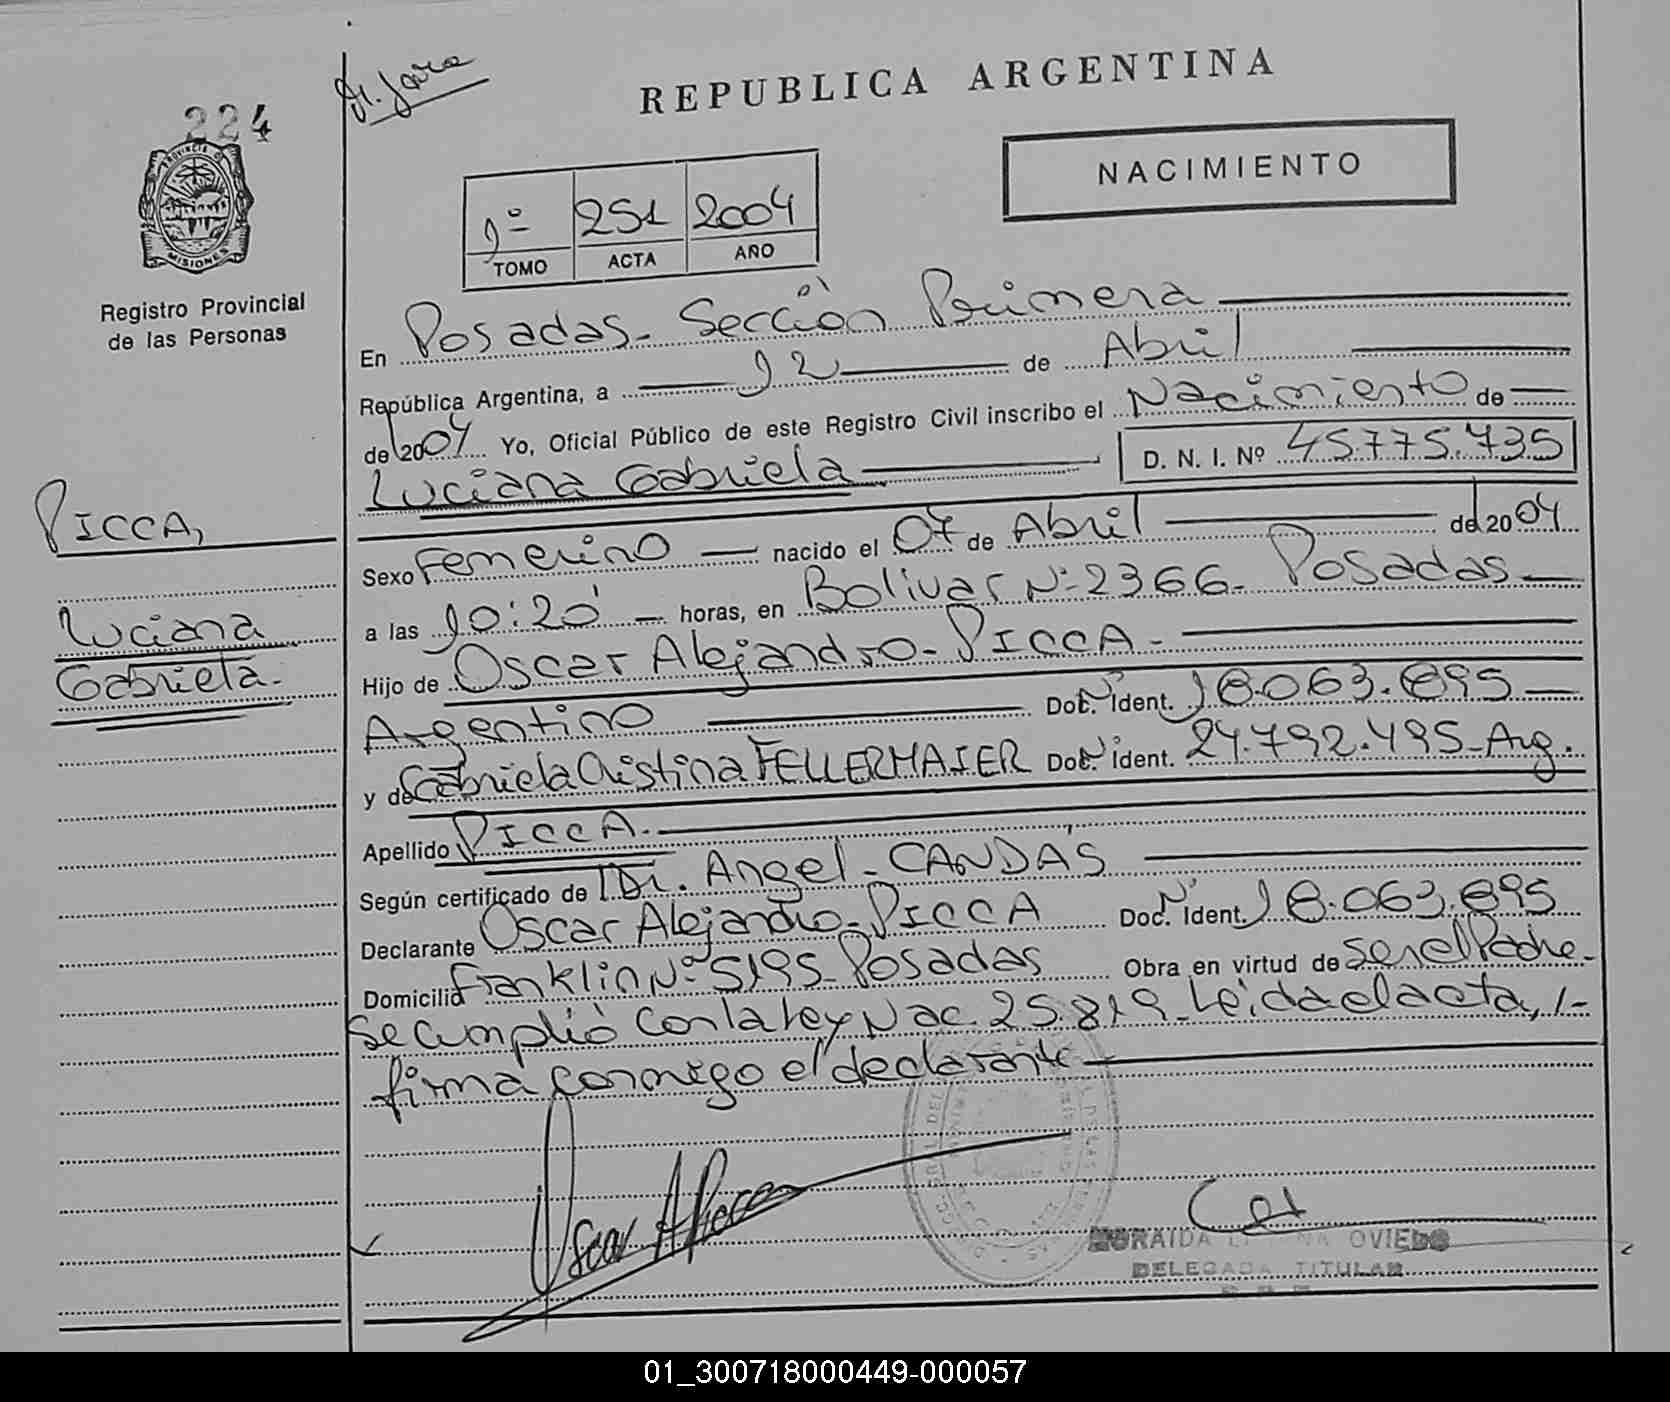 224
PROVINCIA DE
MISIONES
Registro Provincial
de las Personas
REPUBLICA ARGENTINA
NACIMIENTO
1º 251 2004
TOMO ACTA AÑO
En Posadas - Sección Primera
República Argentina, a 12 de Abril
de 2004 Yo, Oficial Público de este Registro Civil inscribo el Nacimiento de
Luciana Gabriela D. N. I. Nº 45.775.735
PICCA,
Luciana
Gabriela.
Sexo Femenino nacido el 07 de Abril de 2004
a las 10:20 horas, en Bolivar Nº 2366 - Posadas
Hijo de Oscar Alejandro - PICCA -
Argentino Doc. Nº Ident. 18.063.895
y de Gabriela Cristina FELLERMAIER Doc. Nº Ident. 24.792.495 - Arg.
Apellido PICCA.
Según certificado de Dr. Angel - CANDAS
Declarante Oscar Alejandro - PICCA Doc. Nº Ident. 18.063.895
Domicilio Franklin Nº 5195 - Posadas Obra en virtud de ser el Padre -
Se cumplió con la Ley Nac. 25.819 - Leída el acta, /-
firma conmigo el declarante
Oscar A Picca
OVIEDO
DELEGADA TITULAR
01_300718000449-000057